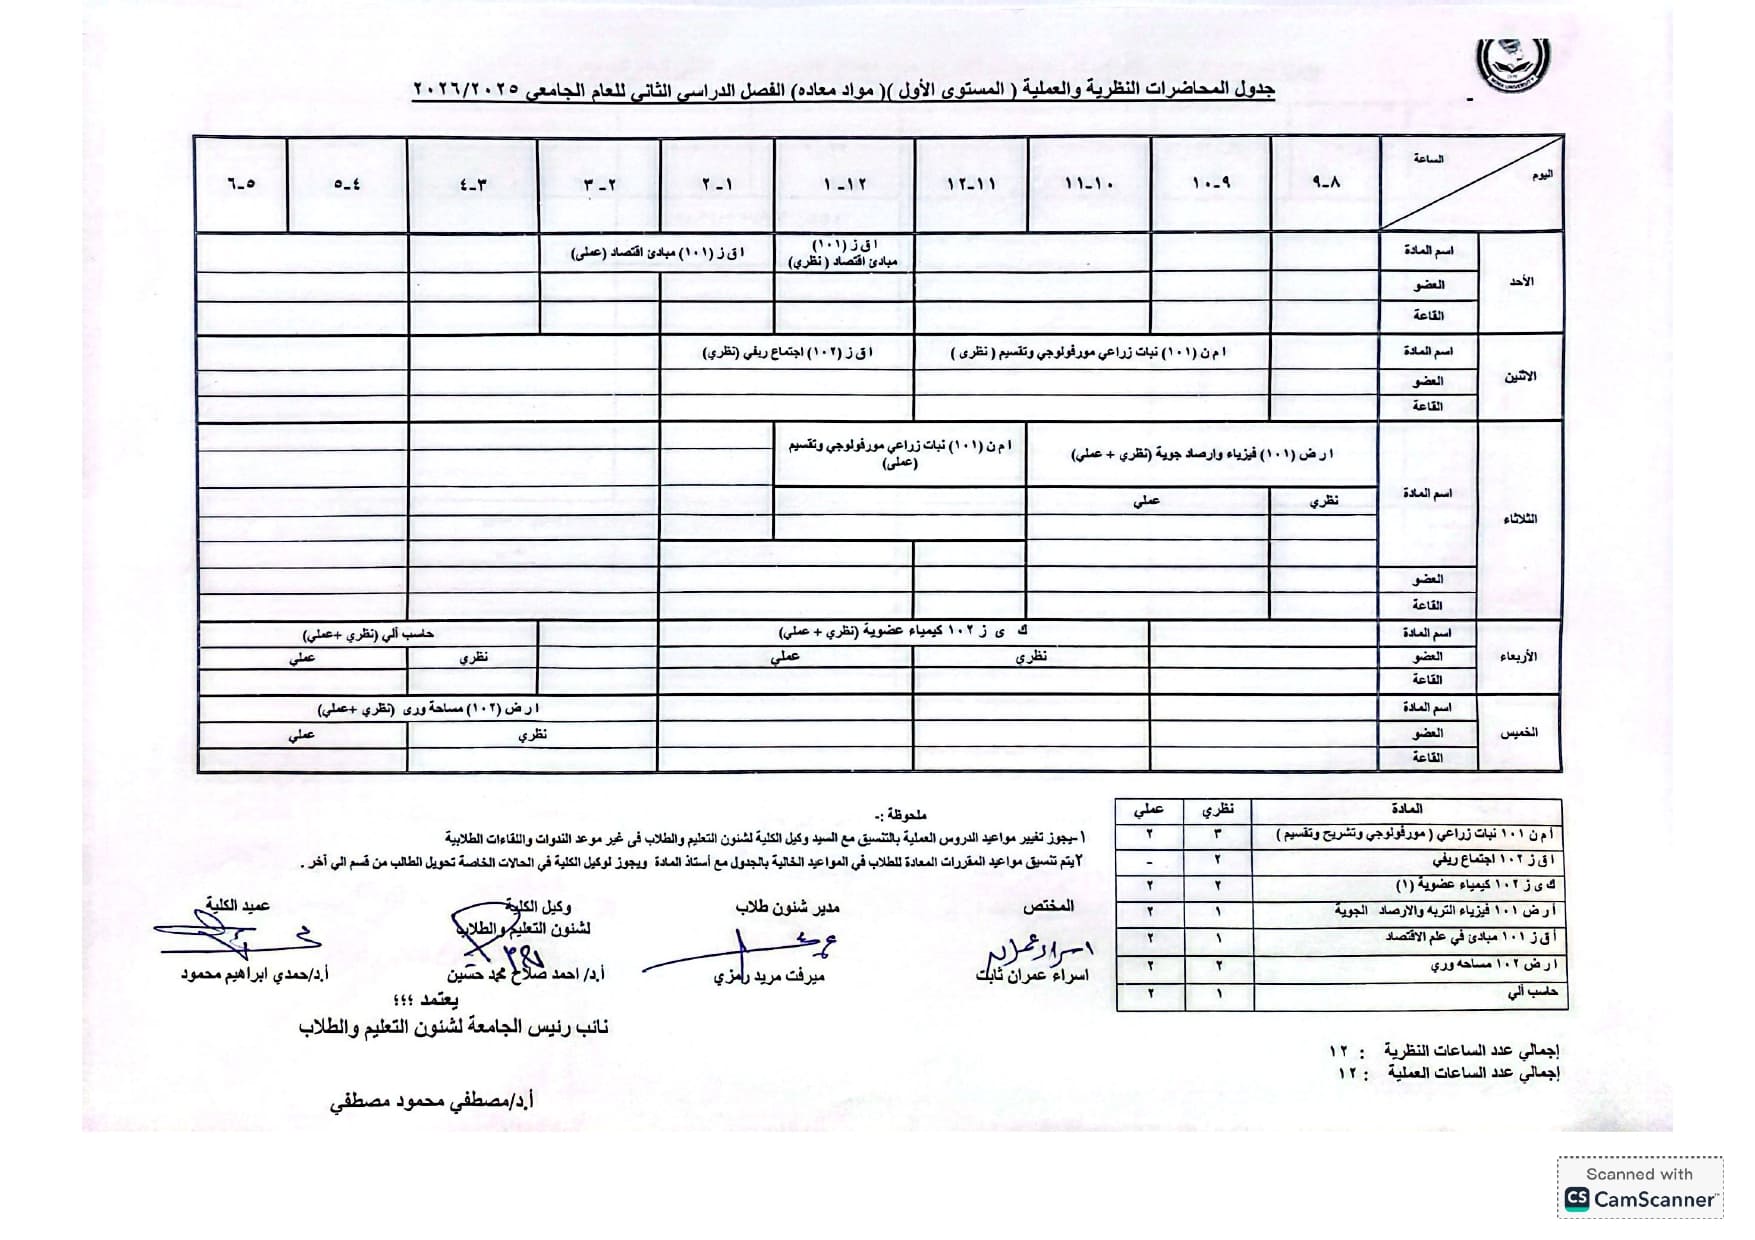 جدول المحاضرات النظرية والعملية ( المستوى الأول )( مواد معاده) الفصل الدراسي الثاني للعام الجامعي ٢٠٢٦/٢٠٢٥
اليوم الساعة ٨-٩ ٩-١٠ ١٠-١١ ١١-١٢ ١٢-١ ١-٢ ٢-٣ ٣-٤ ٤-٥ ٥-٦
الأحد
اسم المادة
ا ق ز (١٠١)
مبادئ اقتصاد ( نظري)
ا ق ز (١٠١) مبادئ اقتصاد (عملي)
العضو
القاعة
الاثنين
اسم المادة ا م ن (١٠١) نبات زراعي مورفولوجي وتقسيم ( نظرى ) ا ق ز (١٠٢) اجتماع ريفي (نظري)
العضو
القاعة
الثلاثاء
اسم المادة
ا ر ض (١٠١) فيزياء وارصاد جوية (نظري + عملي)
نظري عملي
ا م ن (١٠١) نبات زراعي مورفولوجي وتقسيم
(عملى)
العضو
القاعة
الأربعاء
اسم المادة ك ى ز ١٠٢ كيمياء عضوية (نظري + عملي) حاسب آلي (نظري +عملي)
العضو نظري عملي نظري عملي
القاعة
الخميس
اسم المادة ا ر ض (١٠٢) مساحة ورى (نظري +عملي)
العضو نظري عملي
القاعة
المادة نظري عملي
أ م ن ١٠١ نبات زراعي ( مورفولوجي وتشريح وتقسيم ) ٣ ٢
ا ق ز ١٠٢ اجتماع ريفي ٢ -
ك ى ز ١٠٢ كيمياء عضوية (١) ٢ ٢
أ ر ض ١٠١ فيزياء التربه والارصاد الجوية ١ ٢
أ ق ز ١٠١ مبادئ في علم الاقتصاد ١ ٢
ا ر ض ١٠٢ مساحه وري ٢ ٢
حاسب آلي ١ ٢
إجمالي عدد الساعات النظرية : ١٢
إجمالي عدد الساعات العملية : ١٢
ملحوظة :-
١-يجوز تغيير مواعيد الدروس العملية بالتنسيق مع السيد وكيل الكلية لشئون التعليم والطلاب فى غير موعد الندوات واللقاءات الطلابية
٢يتم تنسيق مواعيد المقررات المعادة للطلاب في المواعيد الخالية بالجدول مع أستاذ المادة ويجوز لوكيل الكلية في الحالات الخاصة تحويل الطالب من قسم الي آخر .
المختص مدير شئون طلاب وكيل الكلية عميد الكلية
لشئون التعليم والطلاب
اسراء عمران
اسراء عمران ثابت ميرفت مريد رمزي أ.د/ احمد صلاح محمد حسين أ.د/حمدي ابراهيم محمود
يعتمد ؛؛؛
نائب رئيس الجامعة لشئون التعليم والطلاب
أ.د/مصطفي محمود مصطفي
Scanned with
CS CamScanner